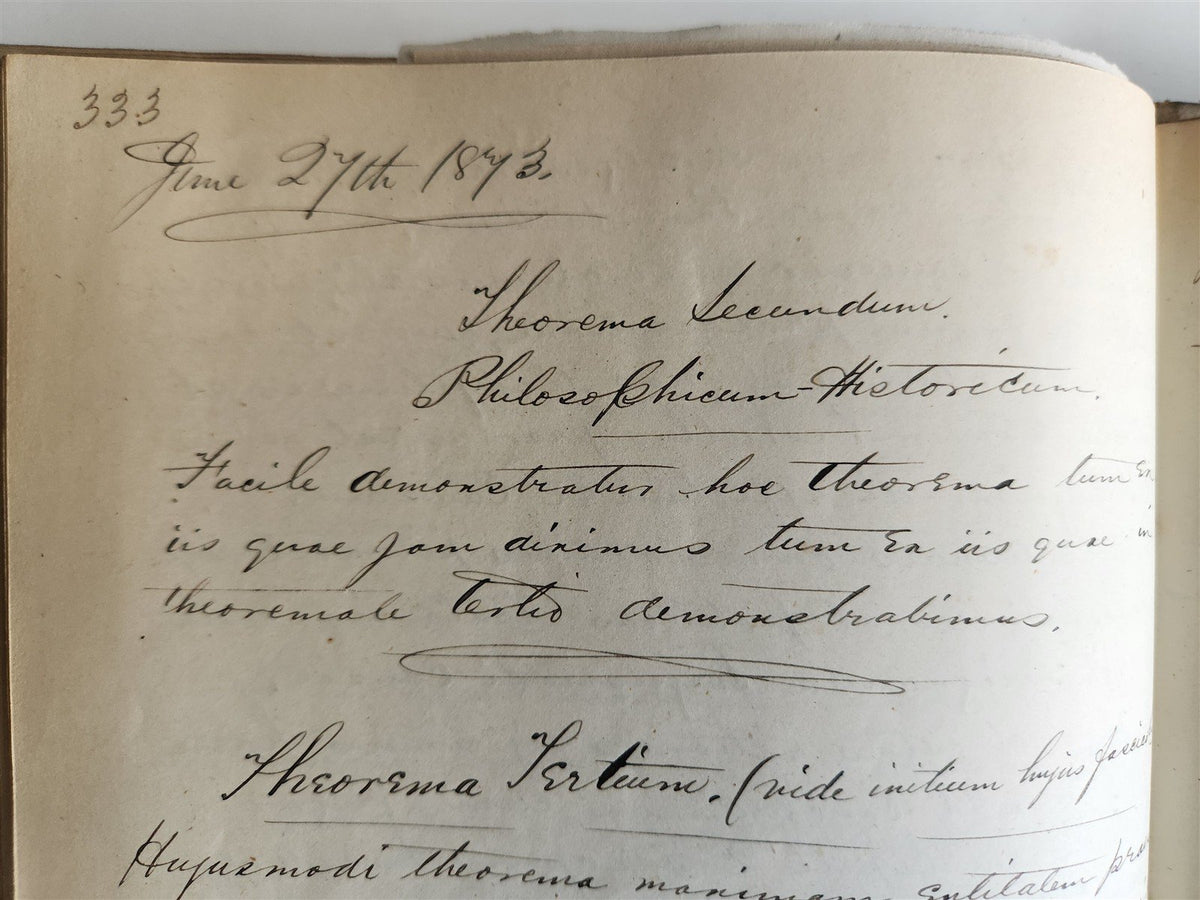 333
June 27th 1873.
Theorema Secundum.
Philosophicum-Historicum.
Facile demonstratur hoc theorema tum ex
iis quae jam diximus tum ex iis quae in
theoremate tertio demonstrabimus.
Theorema Tertium. (vide initium hujus
Hujusmodi theorema maximam